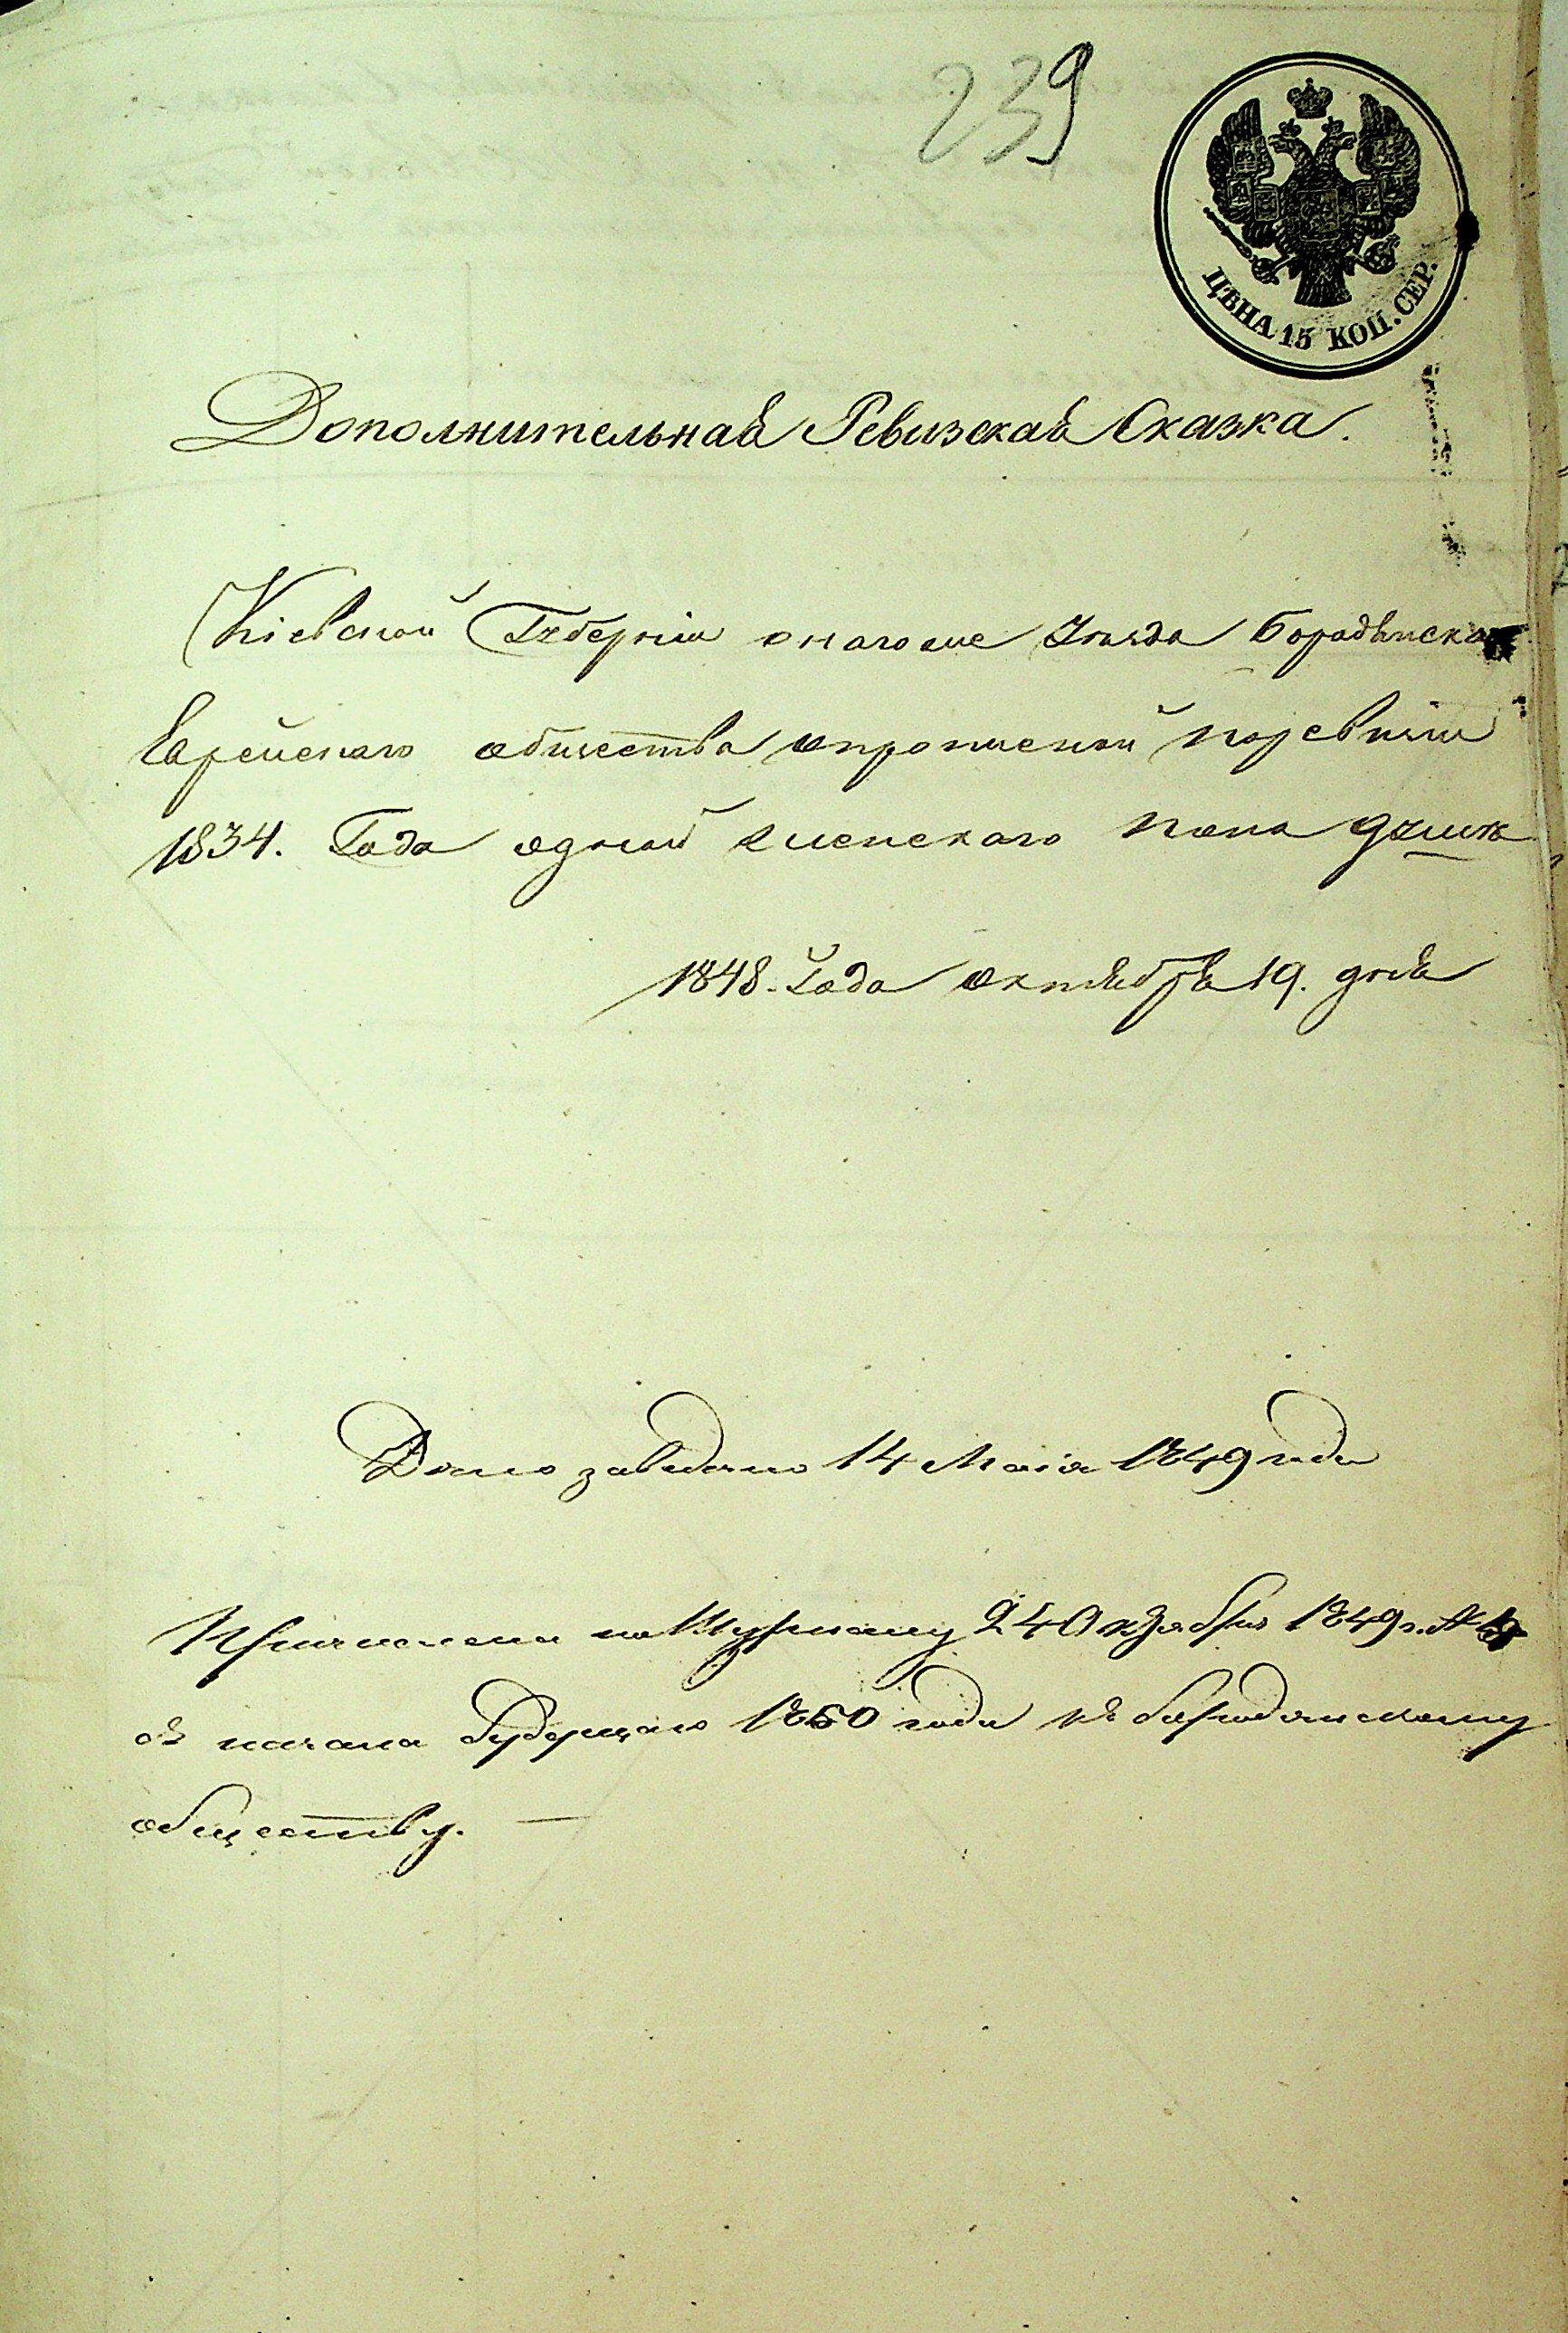 239
ЦѢНА 15 КОП. СЕР.
Дополнительнаѣ Ревизскаѣ Сказка.
Кіевской Губерніи онагоже Уѣзда Борадѣнска
Еврейскаго общества опропусной поревизіи
1834. Года одной женскаго пола душѣ
1848. Года октѣбрѣ 19. днѣ
Дѣло заведено 14 Маія 1849 года
Причислена по Журналу 24 Октября 1849 г. №
съ начала будущаго 1850 года къ Бородянскому
обществу. —